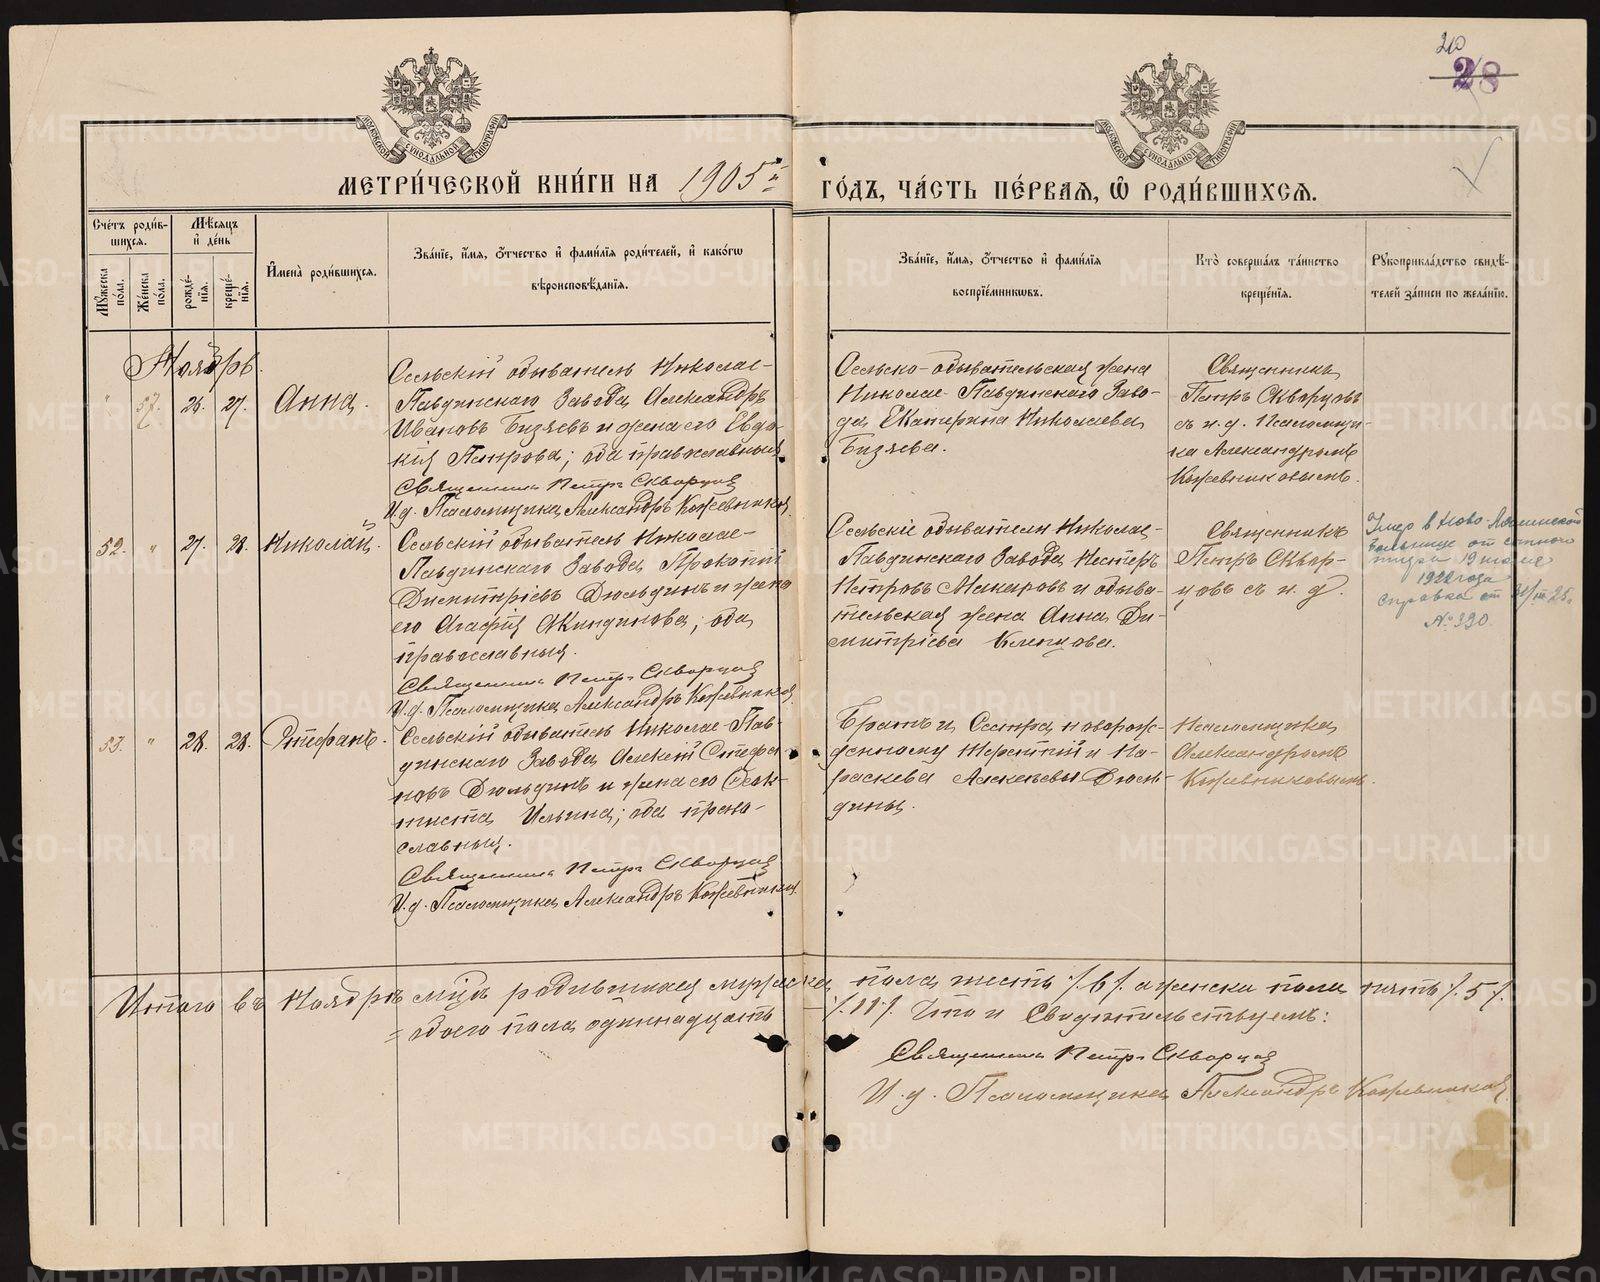 20
28
МОСКОВСКОЙ СѴНОДАЛЬНОЙ ТИПОГРАФІИ
МОСКОВСКОЙ СѴНОДАЛЬНОЙ ТИПОГРАФІИ
МЕТРИ́ЧЕСКОЙ КНИ́ГИ НА 1905й
ГО́ДЪ, ЧА́СТЬ ПЕ́РВАЯ, Ѡ҆ РОДИ́ВШИХСЯ.
Сче́тъ роди́в-
шихся.
Мꙋ́жеска по́ла.
Же́нска по́ла.
Мѣ́сяцъ
и҆ де́нь
рожде́-
нїя.
креще́-
нїя.
И҆мена̀ роди́вшихся.
Зва́нїе, и҆́мя, ѻ҆́тчество и҆ фами́лїя роди́телей, и҆ како́гѡ
вѣроисповѣ́данїя.
Зва́нїе, и҆́мя, ѻ҆́тчество и҆ фами́лїя
воспрїе́мниковъ.
Кто̀ соверша́лъ та́инство
креще́нїя.
Рꙋкоприкла́дство свидѣ́-
телей за́писи по жела́нїю.
Ноябрь.
" 57. 26. 27. Анна.
Сельскій обыватель Николае-
Павдинскаго Завода Александръ
Ивановъ Бизяевъ и жена его Евдо-
кія Петрова; оба православные
Священникъ Петръ Скворцов
И.д. Псаломщика Александръ Кожевников
Сельско-обывательская жена
Николае-Павдинскаго Заво-
да Екатерина Николаева
Бизяева.
Священникъ
Петръ Скворцовъ
съ и.д. Псаломщи-
ка Александромъ
Кожевниковымъ.
52. " 27. 28. Николай.
Сельскій обыватель Николае-
Павдинскаго Завода Прокопій
Димитріевъ Дюльдинъ и жена
его Агафія Акиндинова; оба
православные.
Священникъ Петръ Скворцов
И.д. Псаломщика Александръ Кожевников
Сельскіе обыватели Николае-
Павдинскаго Завода Нестеръ
Петровъ Макаровъ и обыва-
тельская жена Анна Ди-
митріева Клепцова.
Священникъ
Петръ Сквор-
цовъ съ и.д.
Умер в Ново-Лялинской
больнице от сыпного
тифа 19 июля
1922 года
Справка от 30/III 25.
№ 390.
53. " 28. 28. Стефанъ.
Сельскій обыватель Николае-Пав-
динскаго Завода Алексій Стефа-
новъ Дюльдинъ и жена его Ѳеок-
тиста Ильина; оба право-
славные.
Священникъ Петръ Скворцов
И.д. Псаломщика Александръ Кожевников
Братъ и Сестра новорож-
денному Терентій и Па-
раскева Алексѣевы Дюль-
дины.
Псаломщика
Александромъ
Кожевниковымъ.
Итого въ Ноябрѣ мцѣ родившихся мужеска пола шесть /.6/. а женска пола пять /.5/.
= обоего пола одиннадцать /.11./. Что и Свидѣтельствуемъ:
Священникъ Петръ Скворцов
И.д. Псаломщика Александръ Кожевников
METRIKI.GASO-URAL.RU